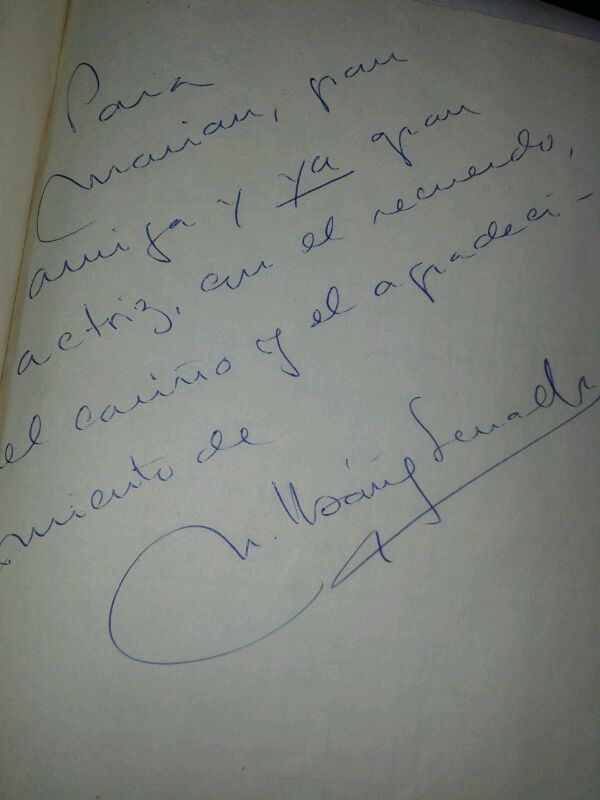 Para
Marian, gran
amiga y ya gran
actriz, en el recuerdo,
el cariño y el agradeci-
miento de
M. Ibáñez Serrador